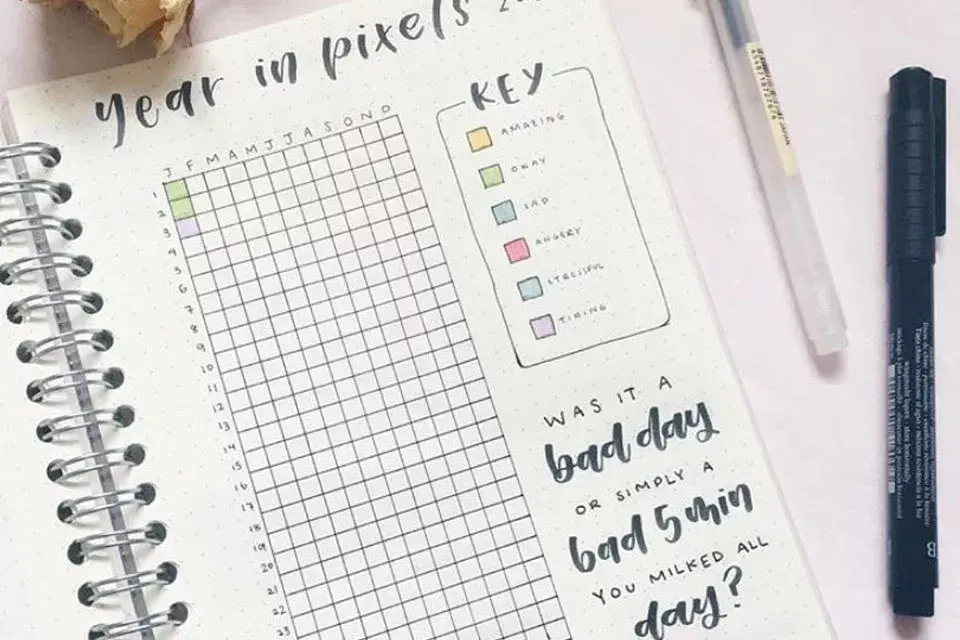 year in pixels
KEY
J F M A M J J A S O N D
AMAZING
OKAY
SAD
ANGERY
STRESSFUL
TIRING
1
2
3
4
5
6
7
8
9
10
11
12
13
14
15
16
17
18
19
20
21
22
23
WAS IT A
bad day
OR SIMPLY A
bad 5 min
YOU MILKED ALL
day?